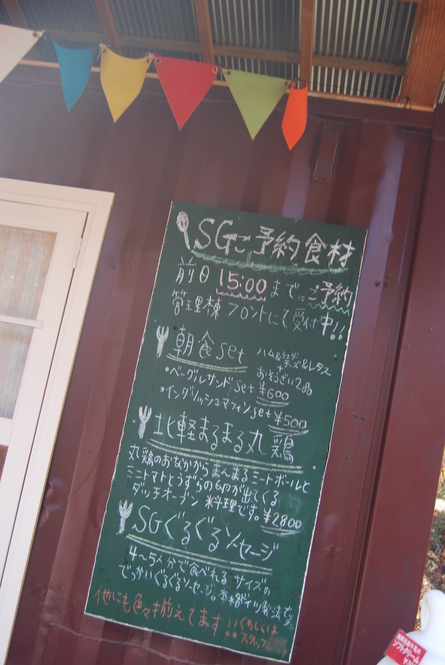 SGご予約食材
前日15:00までにご予約
管理棟フロントにて受付中!!
朝食set
ハム&チーズ&レタス
おそうざい2品
・ベーグルサンドset ¥600
・イングリッシュマフィンset ¥500
北軽まるまる丸鶏
丸鶏のおなかからまんまるミートボールと
ミニトマトとうずらの卵が出てくる
ダッチオーブン料理です。¥2800
SGぐるぐるソーセージ
4〜5人分で食べれるサイズの
でっかいぐるぐるソーセージ。本格ドイツ製法で。
他にも色々揃えてます!!
くわしくは
スタッフ
ソフトクリーム